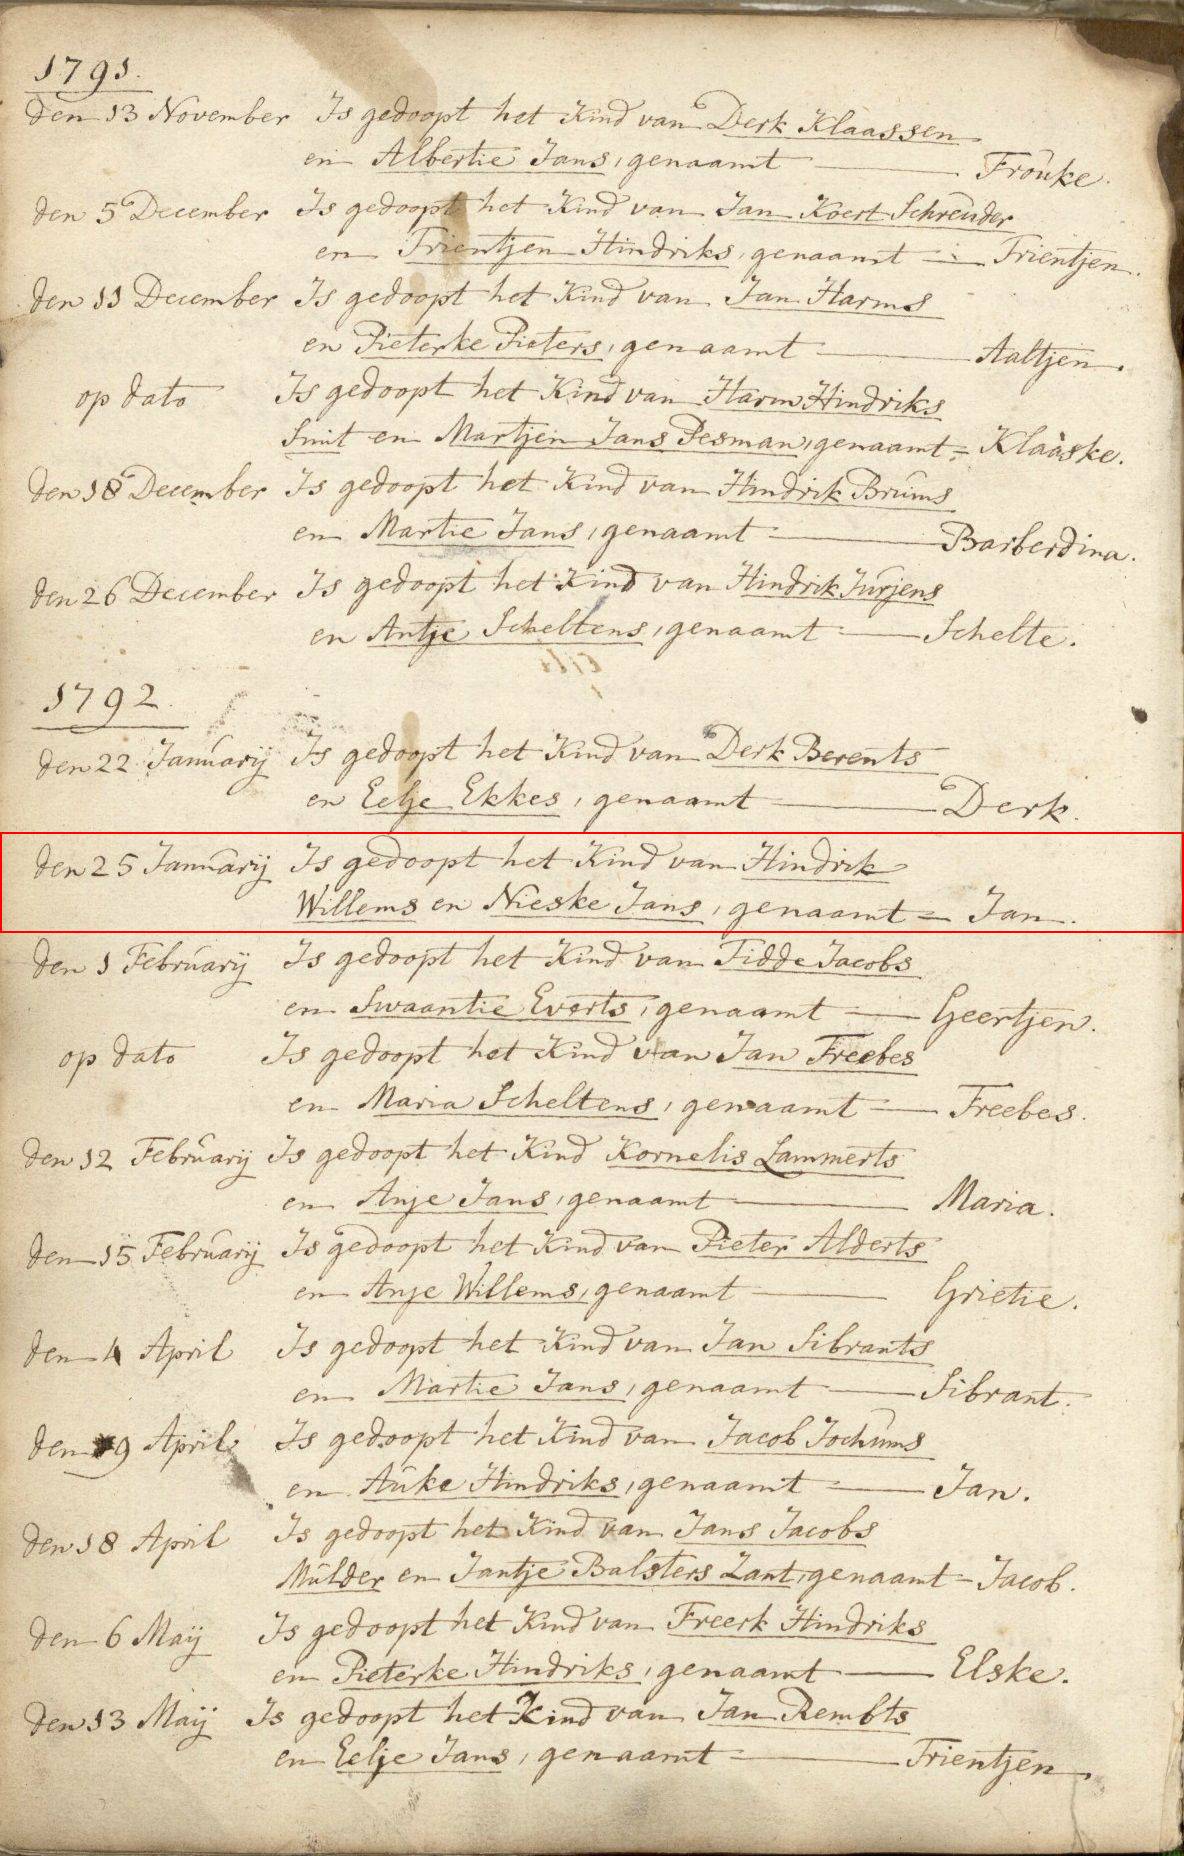 1791.
den 13 November Is gedoopt het Kind van Derk Klaassen
en Albertie Jans, genaamt — Frouke.
den 5 December Is gedoopt het Kind van Jan Koert Schreuder
en Trientjen Hindriks, genaamt — Trientjen.
den 11 December Is gedoopt het Kind van Jan Harms
en Pieterke Pieters, genaamt — Aaltjen.
op dato Is gedoopt het Kind van Harm Hindriks
Smit en Martjen Jans Pesman, genaamt = Klaaske.
den 18 December Is gedoopt het Kind van Hindrik Brums
en Martie Jans, genaamt — Barberdina.
den 26 December Is gedoopt het Kind van Hindrik Jurjens
en Antje Scheltens, genaamt — Schelte.
1792.
den 22 Januarij Is gedoopt het Kind van Derk Berents
en Eelje Ekkes, genaamt — Derk.
den 25 Januarij Is gedoopt het Kind van Hindrik
Willems en Nieske Jans, genaamt = Jan.
den 1 Februarij Is gedoopt het Kind van Tidde Jacobs
en Swaantie Everts, genaamt — Geertjen.
op dato Is gedoopt het Kind van Jan Freebes
en Maria Scheltens, genaamt — Freebes.
den 12 Februarij Is gedoopt het Kind Kornelis Lammerts
en Anje Jans, genaamt — Maria.
den 15 Februarij Is gedoopt het Kind van Pieter Alderts
en Anje Willems, genaamt — Grietie.
den 4 April Is gedoopt het Kind van Jan Sibrants
en Martie Jans, genaamt — Sibrant.
den 9 April Is gedoopt het Kind van Jacob Jochums
en Auke Hindriks, genaamt — Jan.
den 18 April Is gedoopt het Kind van Jans Jacobs
Mulder en Jantje Balsters Zant, genaamt — Jacob.
den 6 Maij Is gedoopt het Kind van Freerk Hindriks
en Pieterke Hindriks, genaamt — Elske.
den 13 Maij Is gedoopt het Kind van Jan Rembts
en Eelje Jans, genaamt — Trientjen,